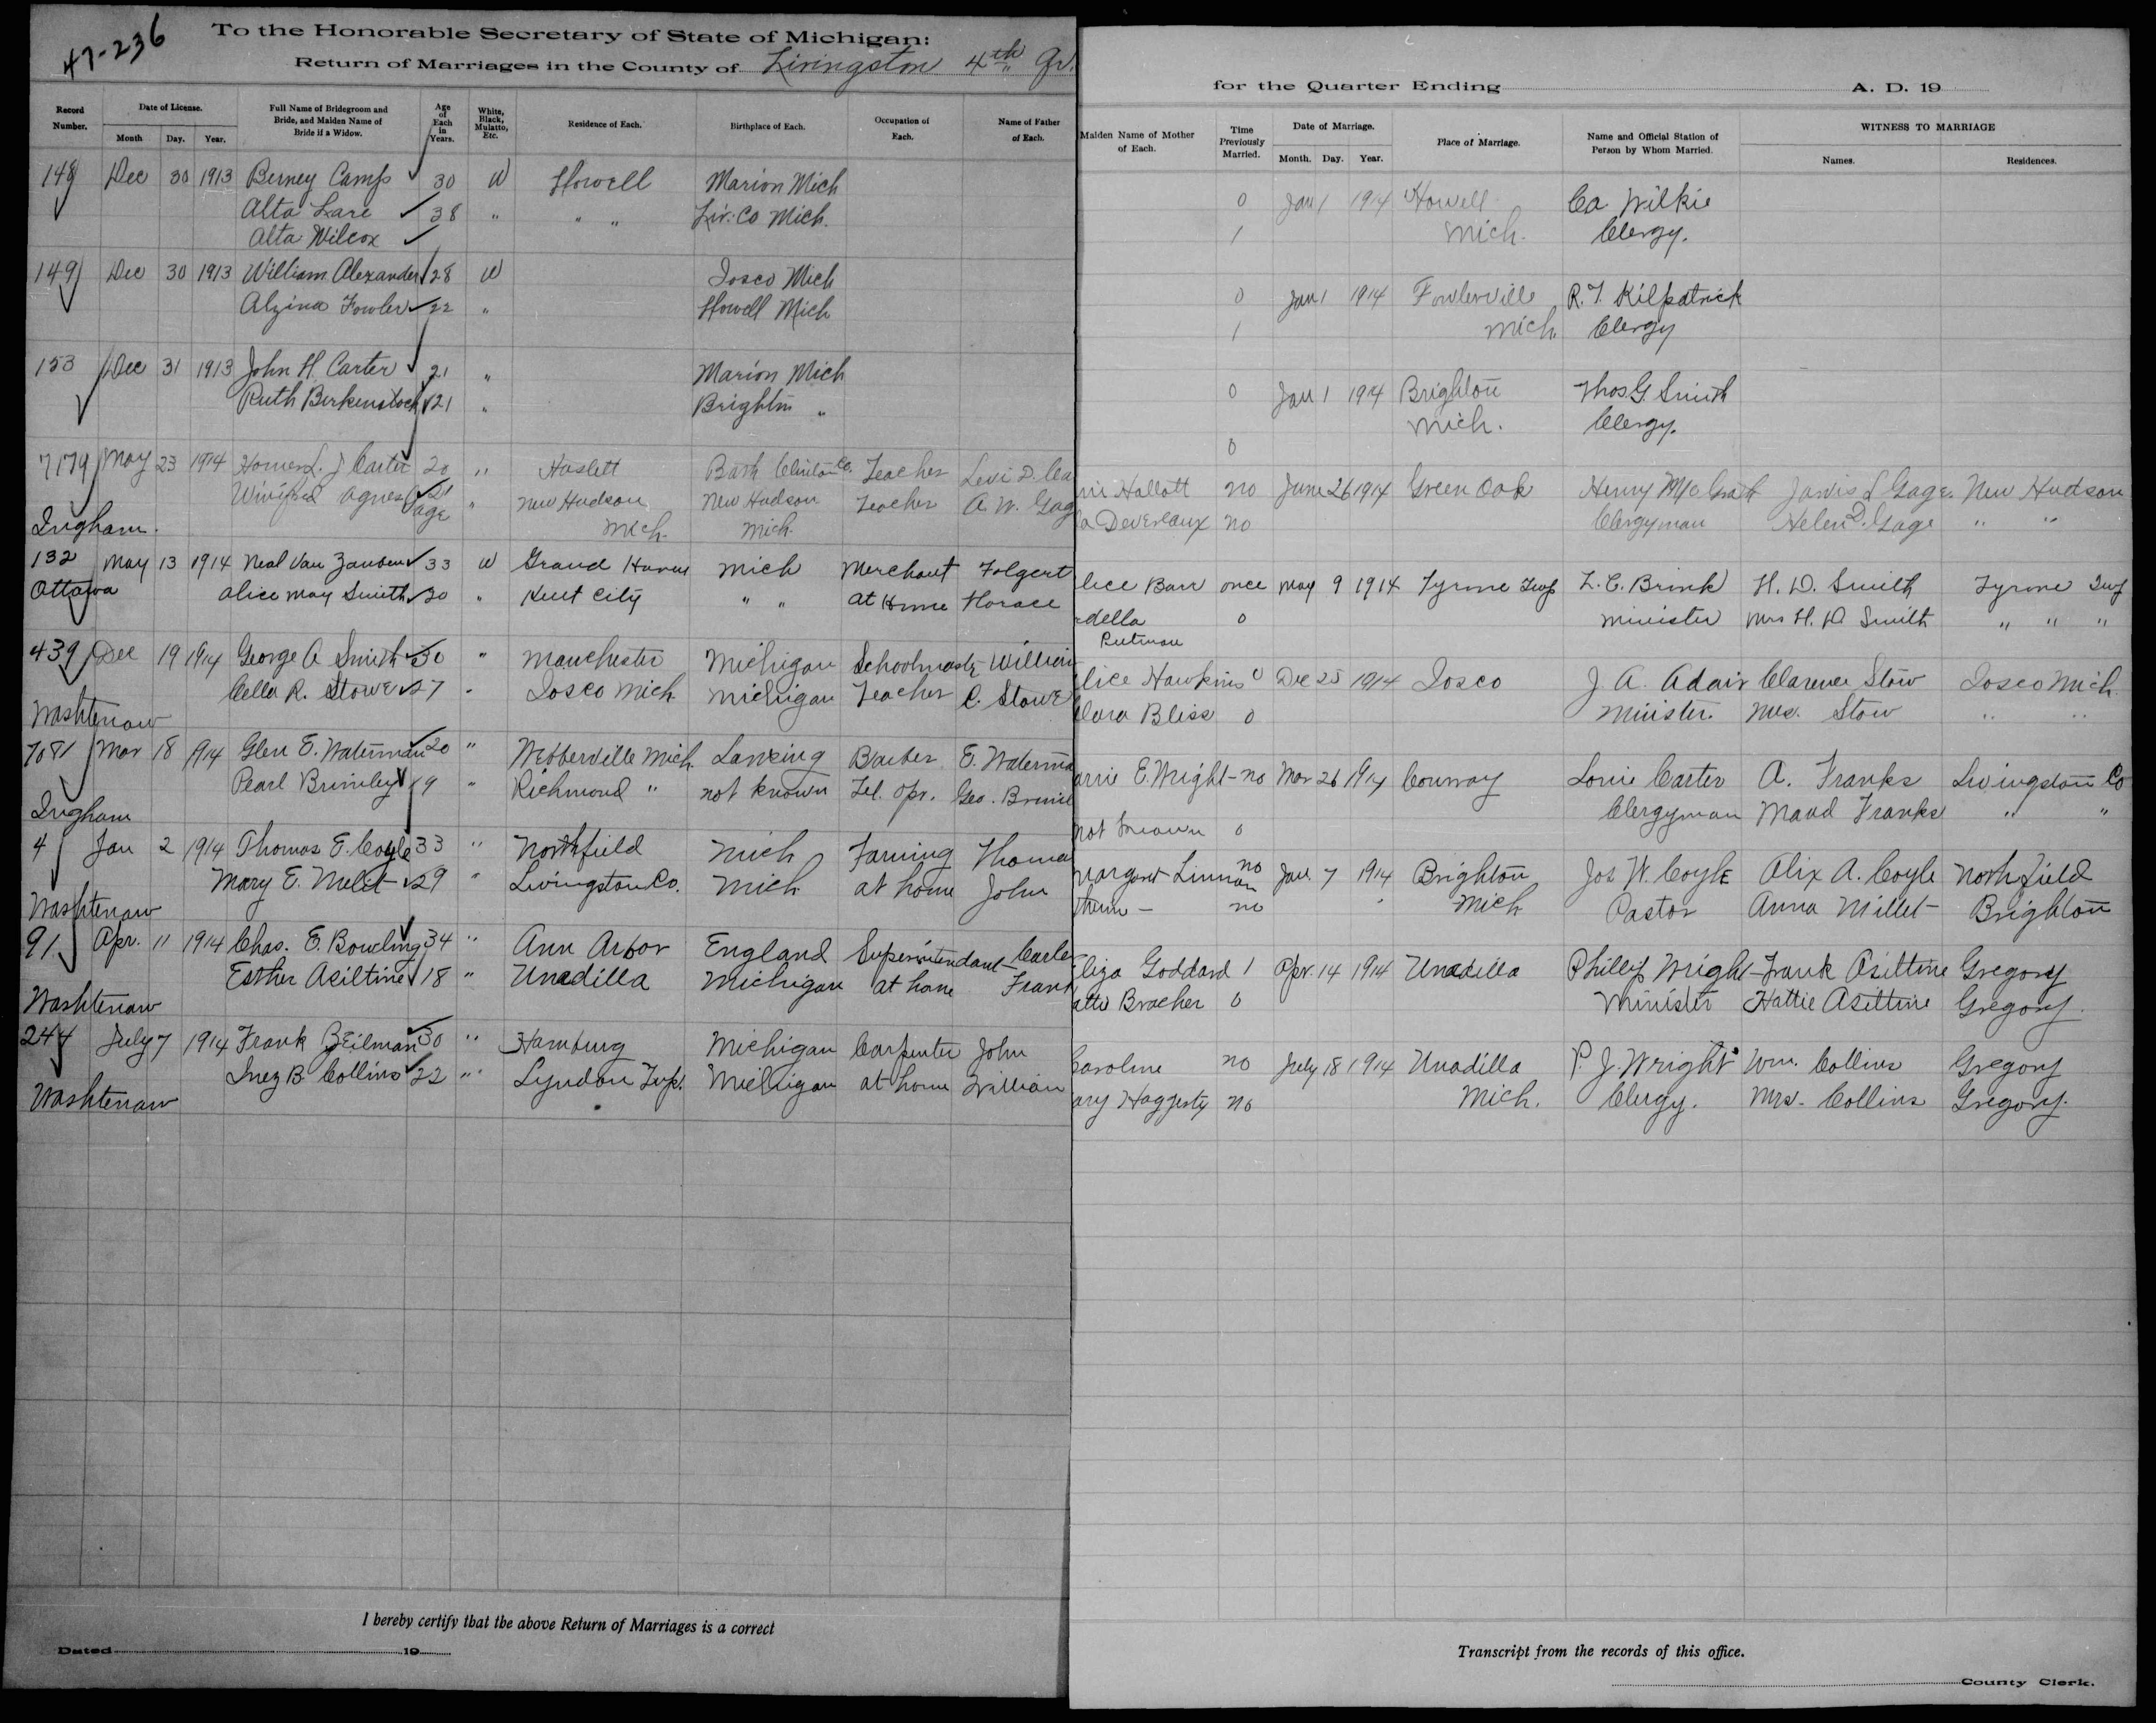 47-236
To the Honorable Secretary of State of Michigan:
Return of Marriages in the County of Livingston 4th Qr.
for the Quarter Ending A. D. 19
Record Number. Date of License. Month Day. Year. Full Name of Bridegroom and Bride, and Maiden Name of Bride if a Widow. Age of Each in Years. White, Black, Mulatto, Etc. Residence of Each. Birthplace of Each. Occupation of Each. Name of Father of Each. Maiden Name of Mother of Each. Time Previously Married. Date of Marriage. Month. Day. Year. Place of Marriage. Name and Official Station of Person by Whom Married. WITNESS TO MARRIAGE Names. Residences.
148 Dec 30 1913 Berney Camp 30 W Howell Marion Mich 0 Jan 1 1914 Howell Ca Wilkie
Alta Lare 38 " " " Liv. Co Mich. 1 Mich. Clergy.
Alta Wilcox
149 Dec 30 1913 William Alexander 28 W Iosco Mich 0 Jan 1 1914 Fowlerville R. T. Kilpatrick
Alzina Fowler 22 " Howell Mich 1 Mich. Clergy
153 Dec 31 1913 John H. Carter 21 " Marion Mich 0 Jan 1 1914 Brighton Thos G Smith
Ruth Berkenstock 21 " Brighton " 0 Mich. Clergy.
7179 May 23 1914 Homer L. J Carter 20 " Haslett Bath Clinton Co. Teacher Levi D. Ca
nie Hallott no June 26 1914 Green Oak Henry McGrath Jarvis L Gage New Hudson
Winifred Agnes Gage 21 " New Hudson Mich. New Hudson Mich. Teacher A. W. Gag
la Devereaux no Clergyman Helen D. Gage " "
Ingham.
132 May 13 1914 Neal Van Zanben 33 W Grand Haven Mich Merchant Folgert
lice Barr once May 9 1914 Tyrone Twp L. C. Brink H. D. Smith Tyrone Twp
Ottawa Alice May Smith 30 " Kent City " " At Home Horace
della Putman 0 Minister Mrs H. D Smith " " "
439 Dec 19 1914 George A Smith 30 " Manchester Michigan Schoolmastr William
lice Hawkins 0 Dec 25 1914 Iosco J. A. Adair Clarence Stow Iosco Mich.
Cella R. Stowe 27 " Iosco Mich Michigan Teacher C. Stowe
lara Bliss 0 Minister. Mrs. Stow " "
Washtenaw
7081 Mar 18 1914 Glen E. Waterman 20 " Webberville Mich. Lansing Barber E. Waterma
arrie E. Wright no Mar 26 1914 Conway Lorie Carter A. Franks Livingston Co
Pearl Brimley 19 " Richmond " not known Tel. Opr. Geo. Brimle
not known 0 Clergyman Maud Franks " "
Ingham
4 Jan 2 1914 Thomas E. Coyle 33 " Northfield Mich Farming Thoma
Margaret Linnan no Jan. 7 1914 Brighton Jos W. Coyle Alix A. Coyle Northfield
Mary E. Melet 29 " Livingston Co. Mich. at home John
no Mich Pastor Anna Millet Brighton
Washtenaw
91 Apr. 11 1914 Chas. E. Bowding 34 " Ann Arbor England Superintendant Carle
Eliza Goddard 1 Apr. 14 1914 Unadilla Phillip Wright Frank Asiltine Gregory
Esther Asiltine 18 " Unadilla Michigan at home Frank
attie Bracher 0 Minister Hattie Asiltine Gregory
Washtenaw
244 July 7 1914 Frank Beilman 30 " Hamburg Michigan Carpenter John
Caroline no July 18 1914 Unadilla P. J. Wright Wm. Collins Gregory
Inez B. Collins 22 " Lyndon Twp. Michigan at home William
ary Haggerty no Mich. Clergy. Mrs. Collins Gregory.
Washtenaw
I hereby certify that the above Return of Marriages is a correct
Transcript from the records of this office.
Dated 19
County Clerk.